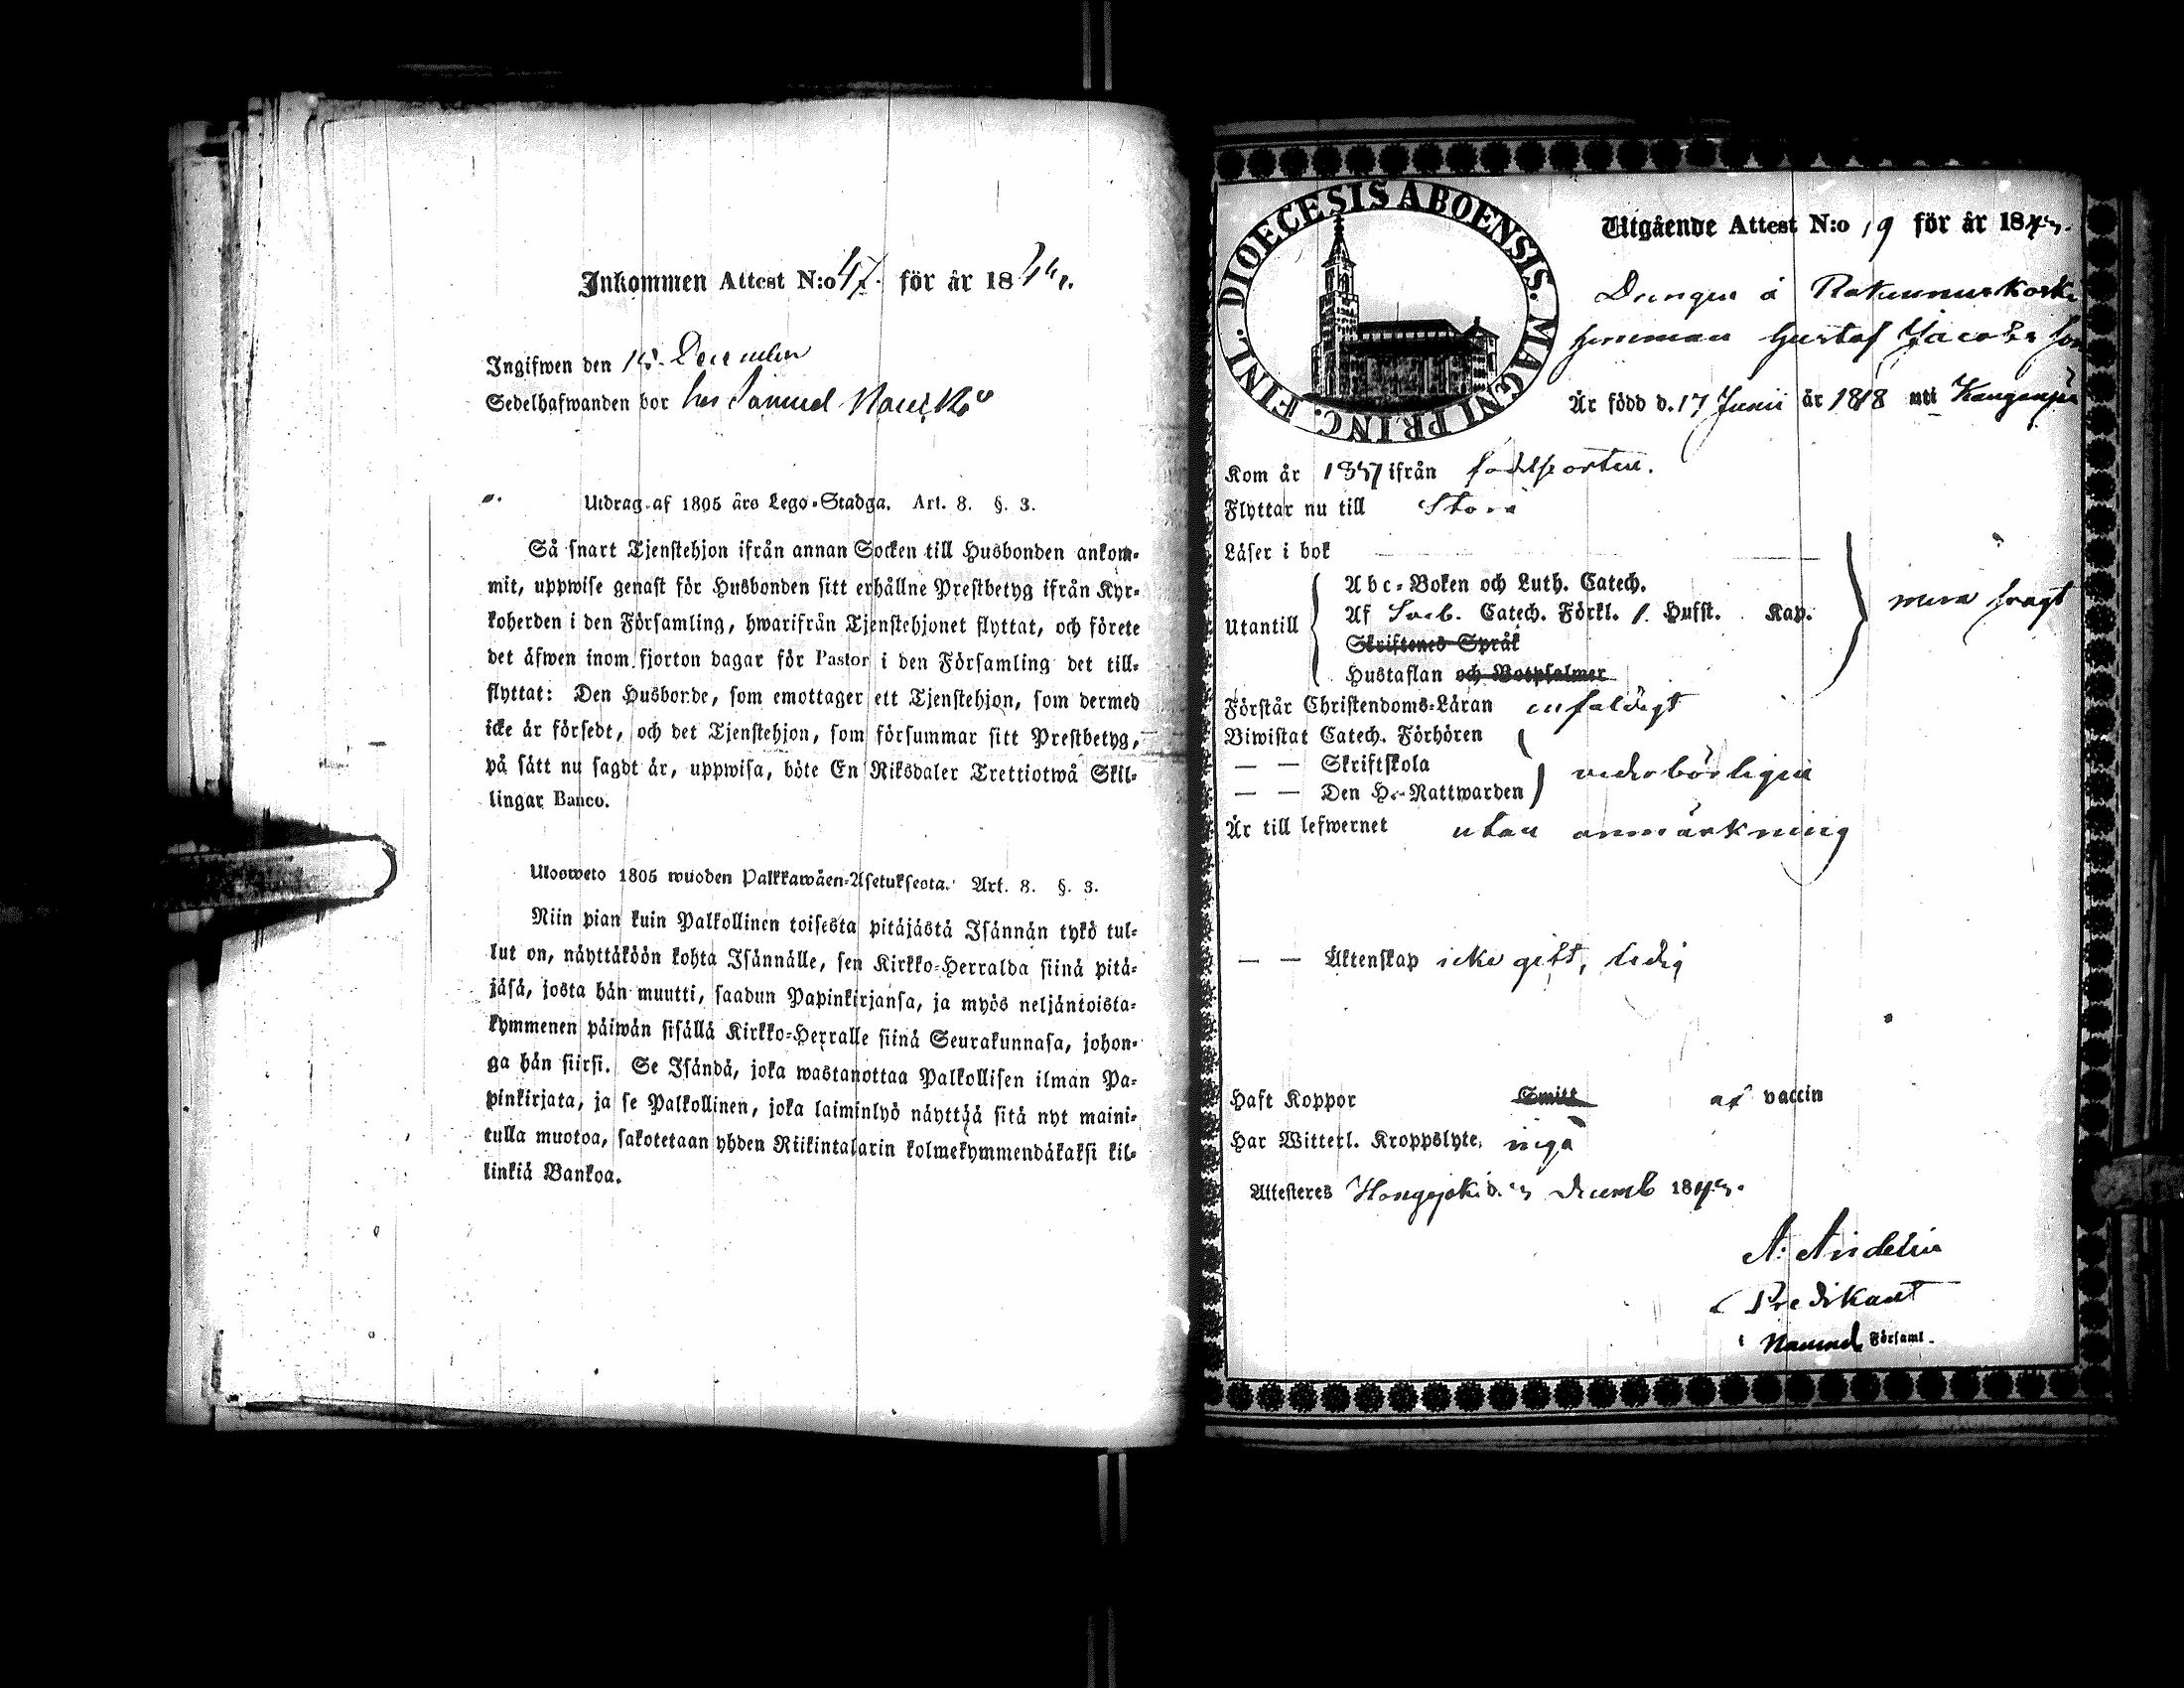 Inkommen Attest N:o 47. för år 184
Ingifwen den 15. December
Sedelhafwanden bor hos Samuel
Utdrag af 1805 års Lego-Stadga. Art. 8. §. 3.
Så snart Tjenstehjon ifrån annan Socken till Husbonden ankom-
mit, uppwise genast för Husbonden sitt erhållne Prestbetyg ifrån Kyr-
koherden i den Församling, hwarifrån Tjenstehjonet flyttat, och förete
det äfwen inom fjorton dagar för Pastor i den Församling det till-
flyttat: Den Husbonde, som emottager ett Tjenstehjon, som dermed
icke är försedt, och det Tjenstehjon, som försummar sitt Prestbetyg,
på sätt nu sagdt är, uppwisa, böte En Riksdaler Trettiotwå Skil-
lingar Banco.
Ulosweto 1805 wuoden Palkkawäen-Asetuksesta. Art. 8. §. 3.
Niin pian kuin Palkollinen toisesta pitäjästä Isännän tykö tul-
lut on, näyttäköön kohta Isännälle, sen Kirkko-Herralda siinä pitä-
jäsä, josta hän muutti, saadun Papinkirjansa, ja myös neljäntoista-
kymmenen päiwän sisällä Kirkko-Herralle siinä Seurakunnasa, johon-
ga hän siirsi. Se Isändä, joka wastanottaa Palkollisen ilman Pa-
pinkirjata, ja se Palkollinen, joka laiminlyö näyttää sitä nyt maini-
tulla muotoa, sakotetaan yhden Riikintalarin kolmekymmendäkaksi kil-
linkiä Bankoa.
DIOECESIS ABOENSIS. MAGNI PRINC. FINL.
Utgående Attest N:o 19 för år 184
Drengen å
hemman Gustaf Jacobs son
Är född d. 17 Junii år 1818 uti
Kom år 1837 ifrån födslsorten.
Flyttar nu till
Läser i bok
Utantill
Abc-Boken och Luth. Catech.
Af Catech. Förkl. 1. Hufst. Kap.
Skriftenes Språk
Hustaflan och Botpsalmer
svagt
Förstår Christendoms-Läran enfaldigt
Biwistat Catech. Förhören
— — Skriftskola
— — Den H. Nattwarden
wederbörligen
Är till lefwernet utan anmärkning
— — Äktenskap icke gift, ledig
Haft Koppor Smitt af vaccin
Har Witterl. Kroppslyte, inga
Attesteres Hongojoki d. Decemb 184
A: Andelin
Predikant
i Församl.